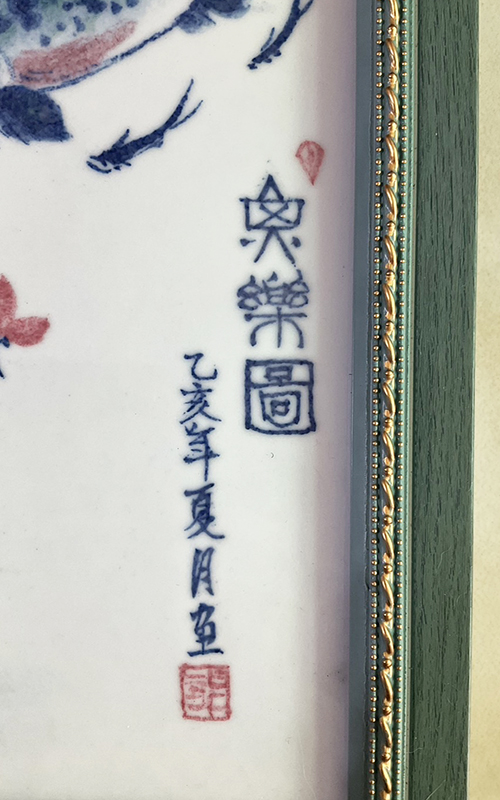 魚樂圖
乙亥年夏月畫